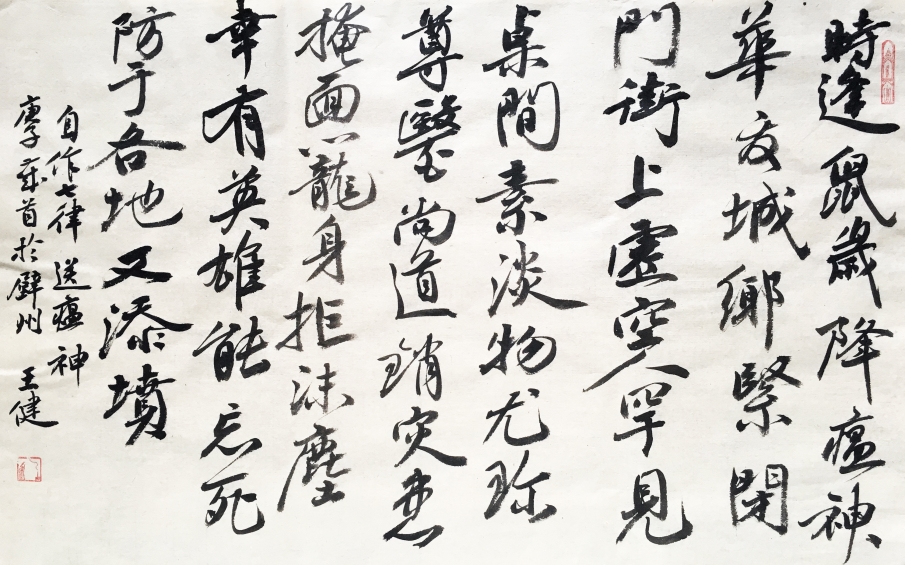 時逢鼠歲降瘟神
華夏城鄉緊閉
門街上虛空人罕見
桌間素淡物尤珍
尊醫尚道銷災患
掩面籠身拒沫塵
幸有英雄能忘死
防于各地又添墳
自作七律 送瘟神
庚子歲首於壁州 王健